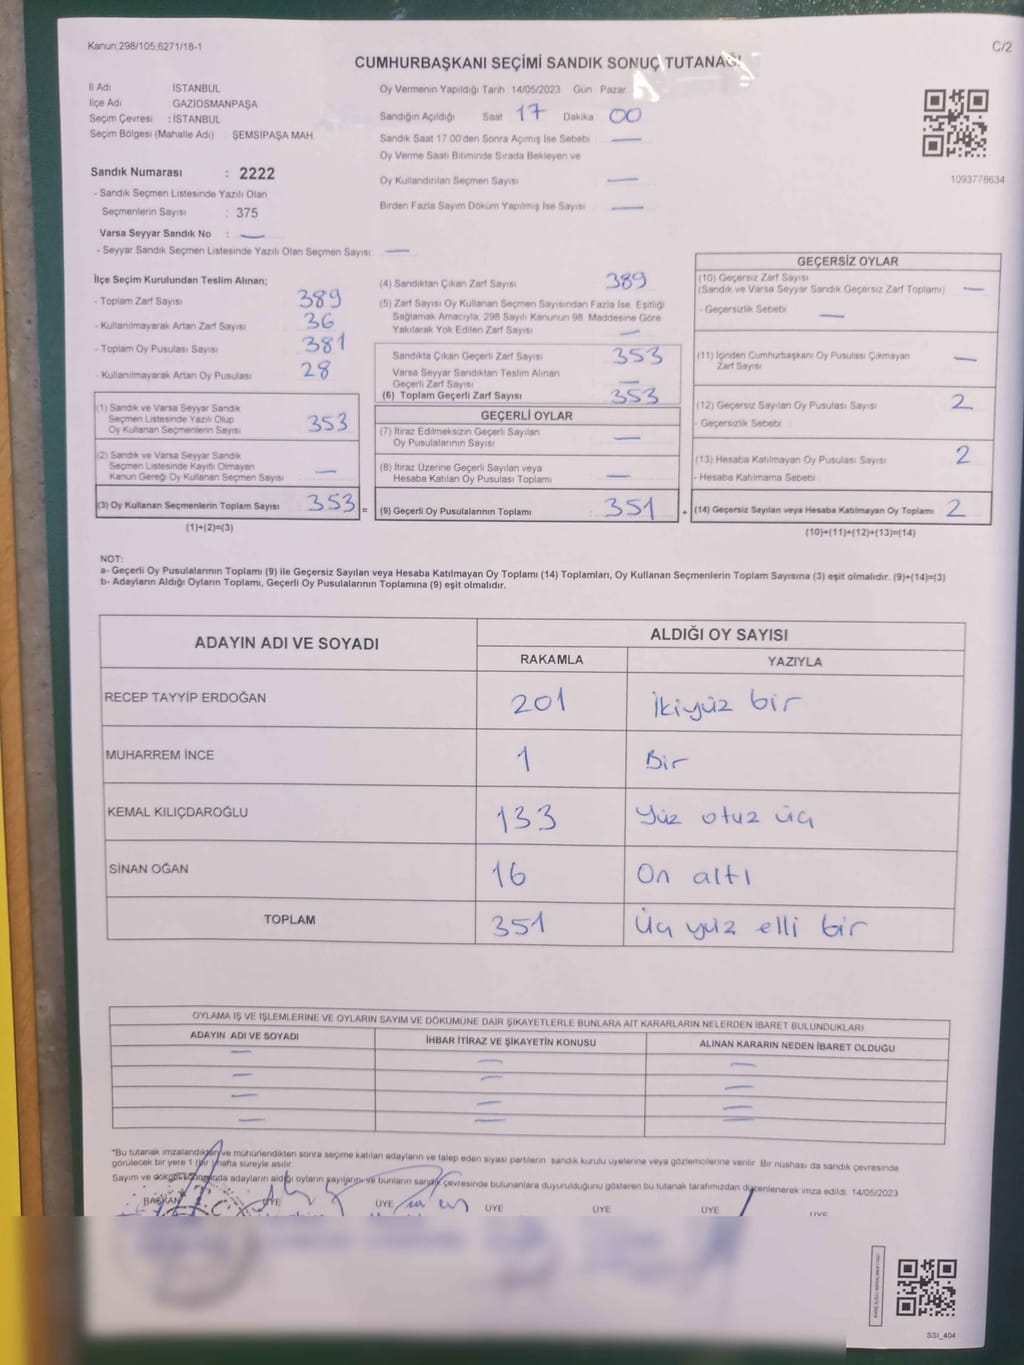 Kanun 298/105,6271/18-1
C/2
CUMHURBAŞKANI SEÇİMİ SANDIK SONUÇ TUTANAĞI
İl Adı İSTANBUL
İlçe Adı GAZİOSMANPAŞA
Seçim Çevresi : İSTANBUL
Seçim Bölgesi (Mahalle Adı) ŞEMSİPAŞA MAH.
Sandık Numarası : 2222
- Sandık Seçmen Listesinde Yazılı Olan
Seçmenlerin Sayısı : 375
Varsa Seyyar Sandık No : —
- Seyyar Sandık Seçmen Listesinde Yazılı Olan Seçmen Sayısı —
Oy Vermenin Yapıldığı Tarih 14/05/2023 Gün Pazar
Sandığın Açıldığı Saat 17 Dakika 00
Sandık Saat 17.00'den Sonra Açımış İse Sebebi —
Oy Verme Saati Bitiminde Sırada Bekleyen ve
Oy Kullandırılan Seçmen Sayısı —
Birden Fazla Sayım Döküm Yapılmış İse Sayısı —
1093778634
İlçe Seçim Kurulundan Teslim Alınan;
- Toplam Zarf Sayısı 389
- Kullanılmayarak Artan Zarf Sayısı 36
- Toplam Oy Pusulası Sayısı 381
- Kullanılmayarak Artan Oy Pusulası 28
(1) Sandık ve Varsa Seyyar Sandık
Seçmen Listesinde Yazılı Olup
Oy Kullanan Seçmenlerin Sayısı 353
(2) Sandık ve Varsa Seyyar Sandık
Seçmen Listesinde Kayıtlı Olmayan
Kanun Gereği Oy Kullanan Seçmen Sayısı —
(3) Oy Kullanan Seçmenlerin Toplam Sayısı 353 =
(1)+(2)=(3)
(4) Sandıktan Çıkan Zarf Sayısı 389
(5) Zarf Sayısı Oy Kullanan Seçmen Sayısından Fazla İse, Eşitliği
Sağlamak Amacıyla, 298 Sayılı Kanunun 98. Maddesine Göre
Yakılarak Yok Edilen Zarf Sayısı —
Sandıkta Çıkan Geçerli Zarf Sayısı 353
Varsa Seyyar Sandıktan Teslim Alınan
Geçerli Zarf Sayısı —
(6) Toplam Geçerli Zarf Sayısı 353
GEÇERLİ OYLAR
(7) İtiraz Edilmeksizin Geçerli Sayılan
Oy Pusulalarının Sayısı —
(8) İtiraz Üzerine Geçerli Sayılan veya
Hesaba Katılan Oy Pusulası Toplamı —
(9) Geçerli Oy Pusulalarının Toplamı 351 +
GEÇERSİZ OYLAR
(10) Geçersiz Zarf Sayısı
(Sandık ve Varsa Seyyar Sandık Geçersiz Zarf Toplamı) —
- Geçersizlik Sebebi —
(11) İçinden Cumhurbaşkanı Oy Pusulası Çıkmayan
Zarf Sayısı —
(12) Geçersiz Sayılan Oy Pusulası Sayısı 2
- Geçersizlik Sebebi
(13) Hesaba Katılmayan Oy Pusulası Sayısı 2
- Hesaba Katılmama Sebebi
(14) Geçersiz Sayılan veya Hesaba Katılmayan Oy Toplamı 2
(10)+(11)+(12)+(13)=(14)
NOT:
a- Geçerli Oy Pusulalarının Toplamı (9) ile Geçersiz Sayılan veya Hesaba Katılmayan Oy Toplamı (14) Toplamları, Oy Kullanan Seçmenlerin Toplam Sayısına (3) eşit olmalıdır. (9)+(14)=(3)
b- Adayların Aldığı Oyların Toplamı, Geçerli Oy Pusulalarının Toplamına (9) eşit olmalıdır.
ADAYIN ADI VE SOYADI ALDIĞI OY SAYISI
RAKAMLA YAZIYLA
RECEP TAYYİP ERDOĞAN 201 İkiyüz bir
MUHARREM İNCE 1 Bir
KEMAL KILIÇDAROĞLU 133 Yüz otuz üç
SİNAN OĞAN 16 On altı
TOPLAM 351 Üç yüz elli bir
OYLAMA İŞ VE İŞLEMLERİNE VE OYLARIN SAYIM VE DÖKÜMÜNE DAİR ŞİKAYETLERLE BUNLARA AİT KARARLARIN NELERDEN İBARET BULUNDUKLARI
ADAYIN ADI VE SOYADI İHBAR İTİRAZ VE ŞİKAYETİN KONUSU ALINAN KARARIN NEDEN İBARET OLDUĞU
— — —
— — —
— — —
— — —
*Bu tutanak imzalandıktan ve mühürlendikten sonra seçime katılan adayların ve talep eden siyasi partilerin sandık kurulu üyelerine veya gözlemcilerine verilir. Bir nüshası da sandık çevresinde
görülecek bir yere 1 (bir) hafta süreyle asılır.
Sayım ve döküm sonucunda adayların aldığı oyların sayılarını ve bunların sandık çevresinde bulunanlara duyurulduğunu gösteren bu tutanak tarafımızdan düzenlenerek imza edildi. 14/05/2023
BAŞKAN ÜYE ÜYE ÜYE ÜYE ÜYE ÜYE
SSI_404